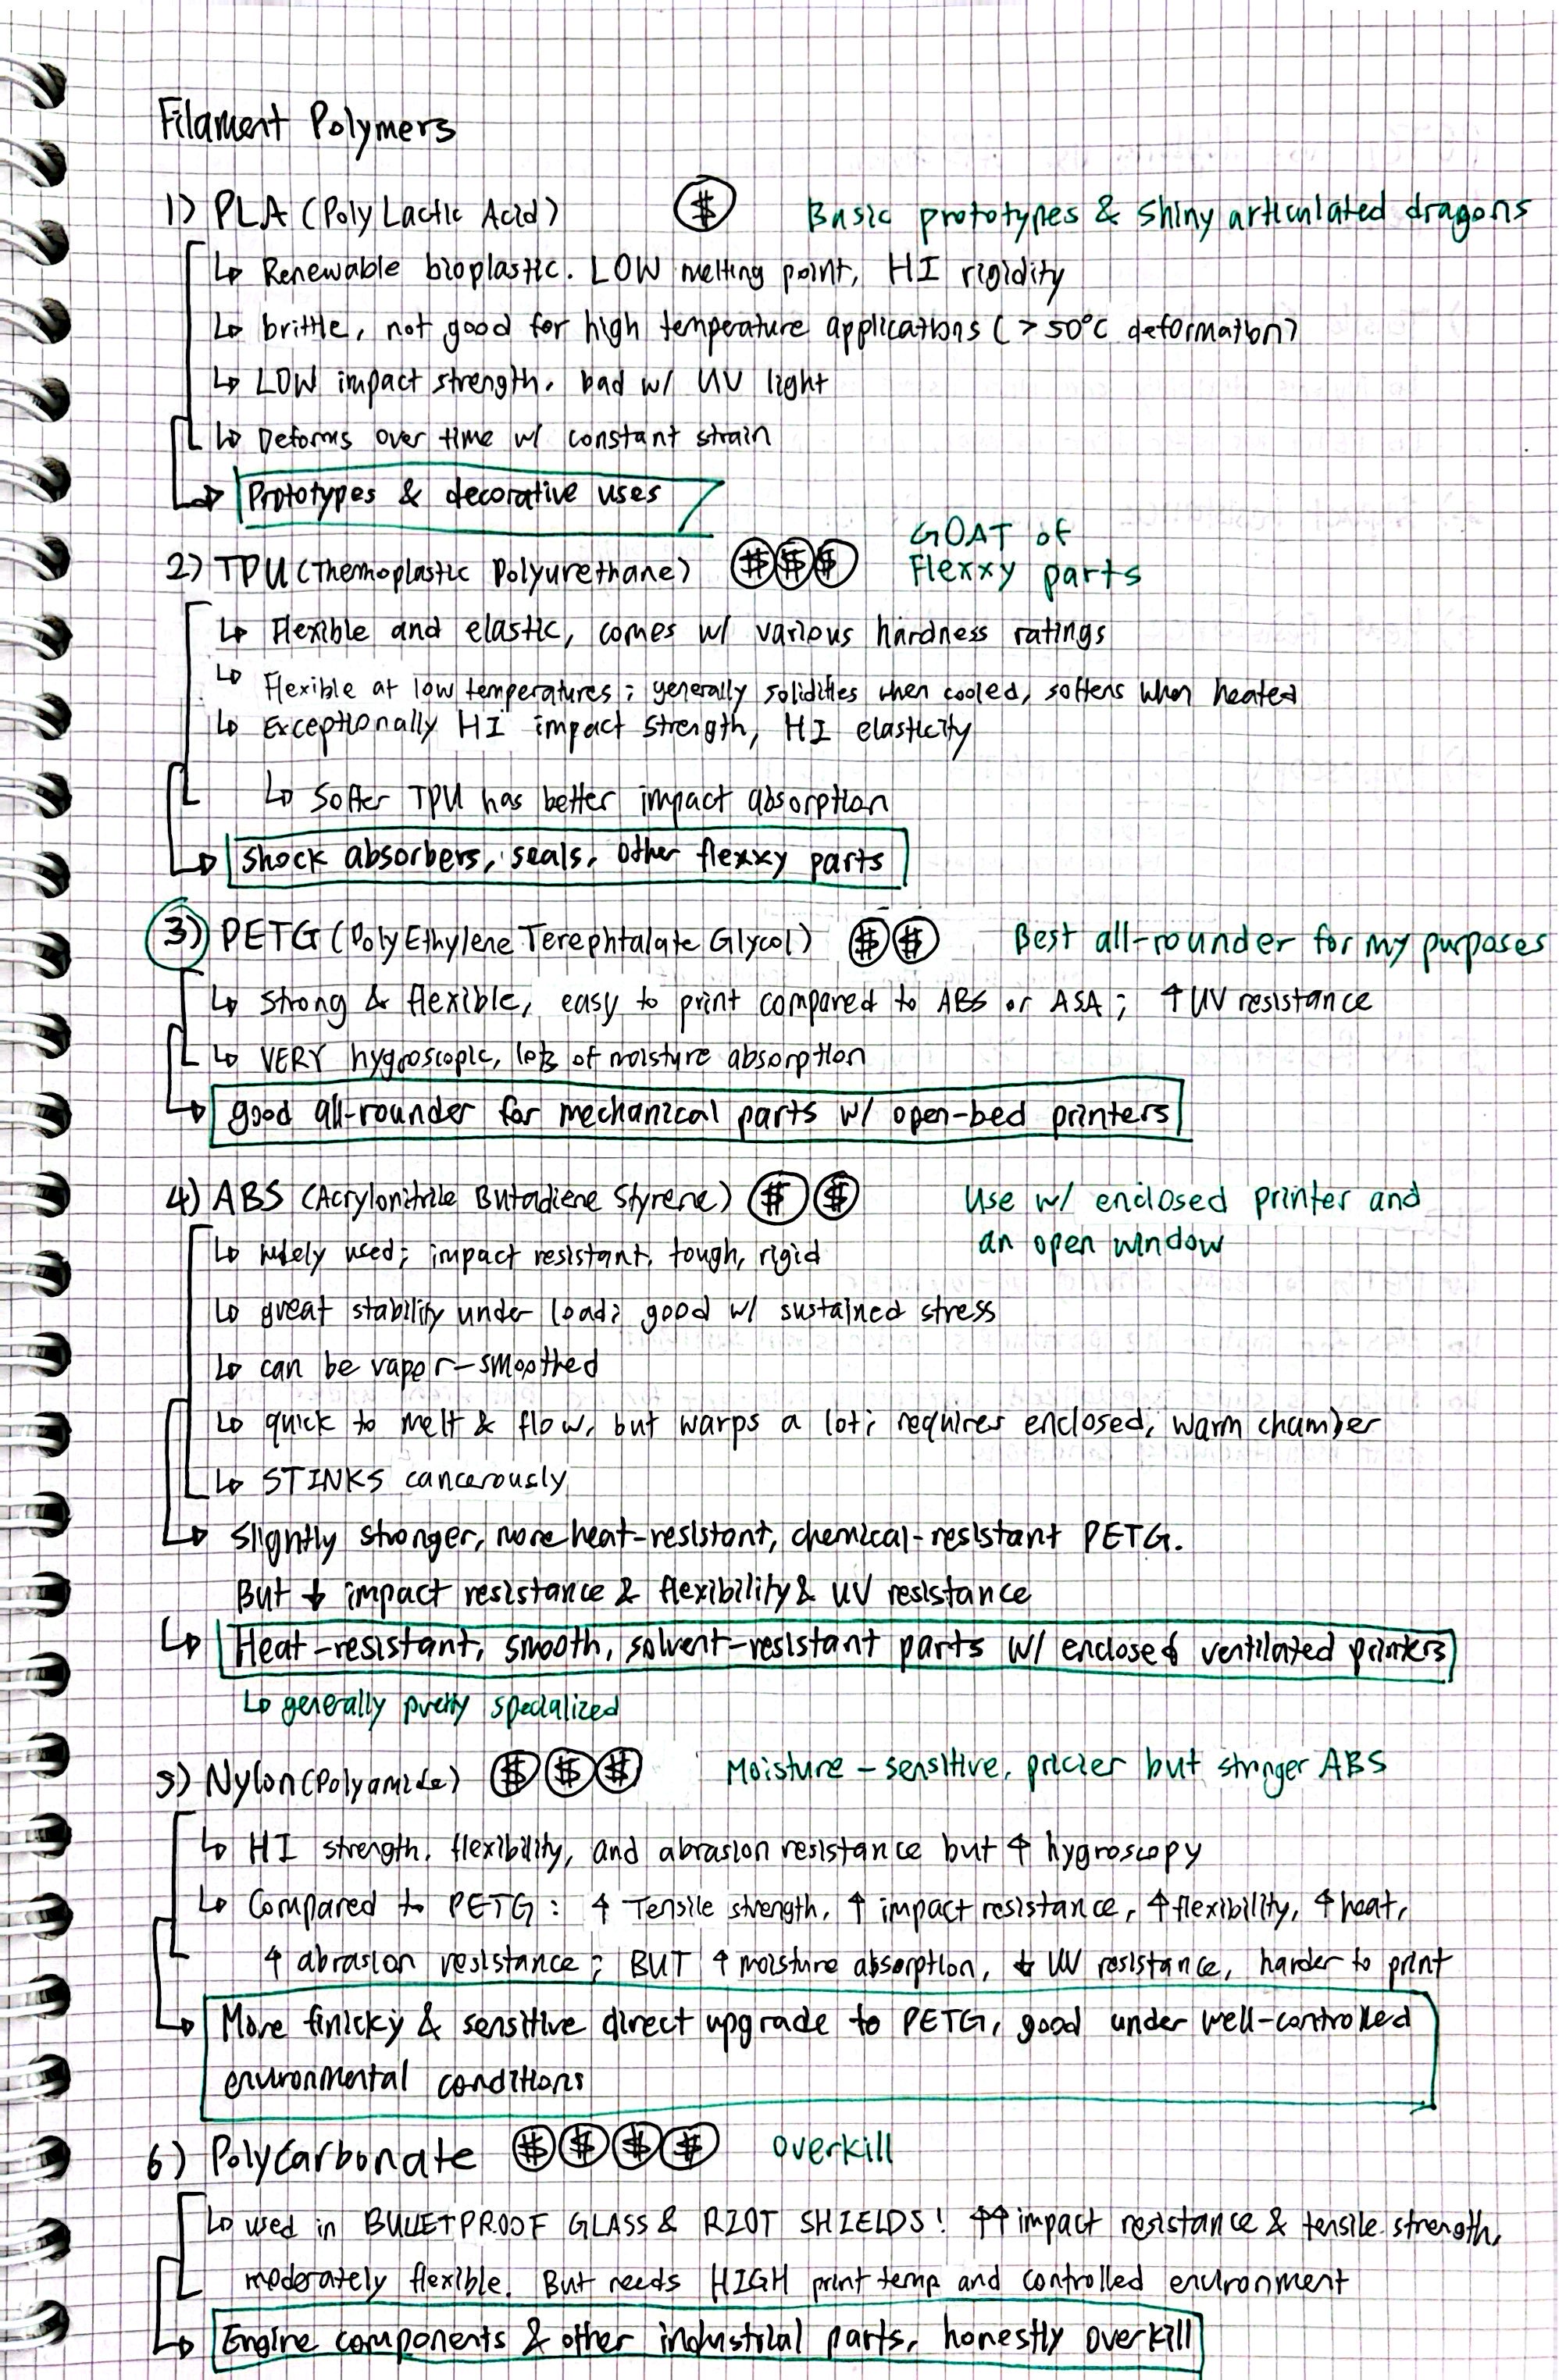 Filament Polymers
1) PLA (Poly Lactic Acid) $ Basic prototypes & shiny articulated dragons
↳ Renewable bioplastic. LOW melting point, HI rigidity
↳ brittle, not good for high temperature applications (>50°C deformation)
↳ LOW impact strength, bad w/ UV light
↳ Deforms over time w/ constant strain
→ Prototypes & decorative uses
2) TPU (Thermoplastic Polyurethane) $$$ GOAT of
Flexxy parts
↳ Flexible and elastic, comes w/ various hardness ratings
↳ Flexible at low temperatures; generally solidifies when cooled, softens when heated
↳ Exceptionally HI impact strength, HI elasticity
↳ Softer TPU has better impact absorption
→ shock absorbers, seals, other flexxy parts
3) PETG (Poly Ethylene Terephtalate Glycol) $$ Best all-rounder for my purposes
↳ strong & flexible, easy to print compared to ABS or ASA; ↑ UV resistance
↳ VERY hygroscopic, lots of moisture absorption
→ good all-rounder for mechanical parts w/ open-bed printers
4) ABS (Acrylonitrile Butadiene Styrene) $$ Use w/ enclosed printer and
an open window
↳ widely used; impact resistant, tough, rigid
↳ great stability under load; good w/ sustained stress
↳ can be vapor-smoothed
↳ quick to melt & flow, but warps a lot; requires enclosed, warm chamber
↳ STINKS cancerously
→ slightly stronger, more heat-resistant, chemical-resistant PETG.
But ↓ impact resistance & flexibility & UV resistance
↳ Heat-resistant, smooth, solvent-resistant parts w/ enclosed ventilated printers
↳ generally pretty specialized
5) Nylon (Polyamide) $$$ Moisture-sensitive, pricier but stronger ABS
↳ HI strength, flexibility, and abrasion resistance but ↑ hygroscopy
↳ Compared to PETG: ↑ Tensile strength, ↑ impact resistance, ↑ flexibility, ↑ heat,
↑ abrasion resistance; BUT ↑ moisture absorption, ↓ UV resistance, harder to print
→ More finicky & sensitive direct upgrade to PETG, good under well-controlled
environmental conditions
6) Polycarbonate $$$$ overkill
↳ used in BULLETPROOF GLASS & RIOT SHIELDS! ↑↑ impact resistance & tensile strength,
moderately flexible. But needs HIGH print temp and controlled environment
→ Engine components & other industrial parts, honestly overkill